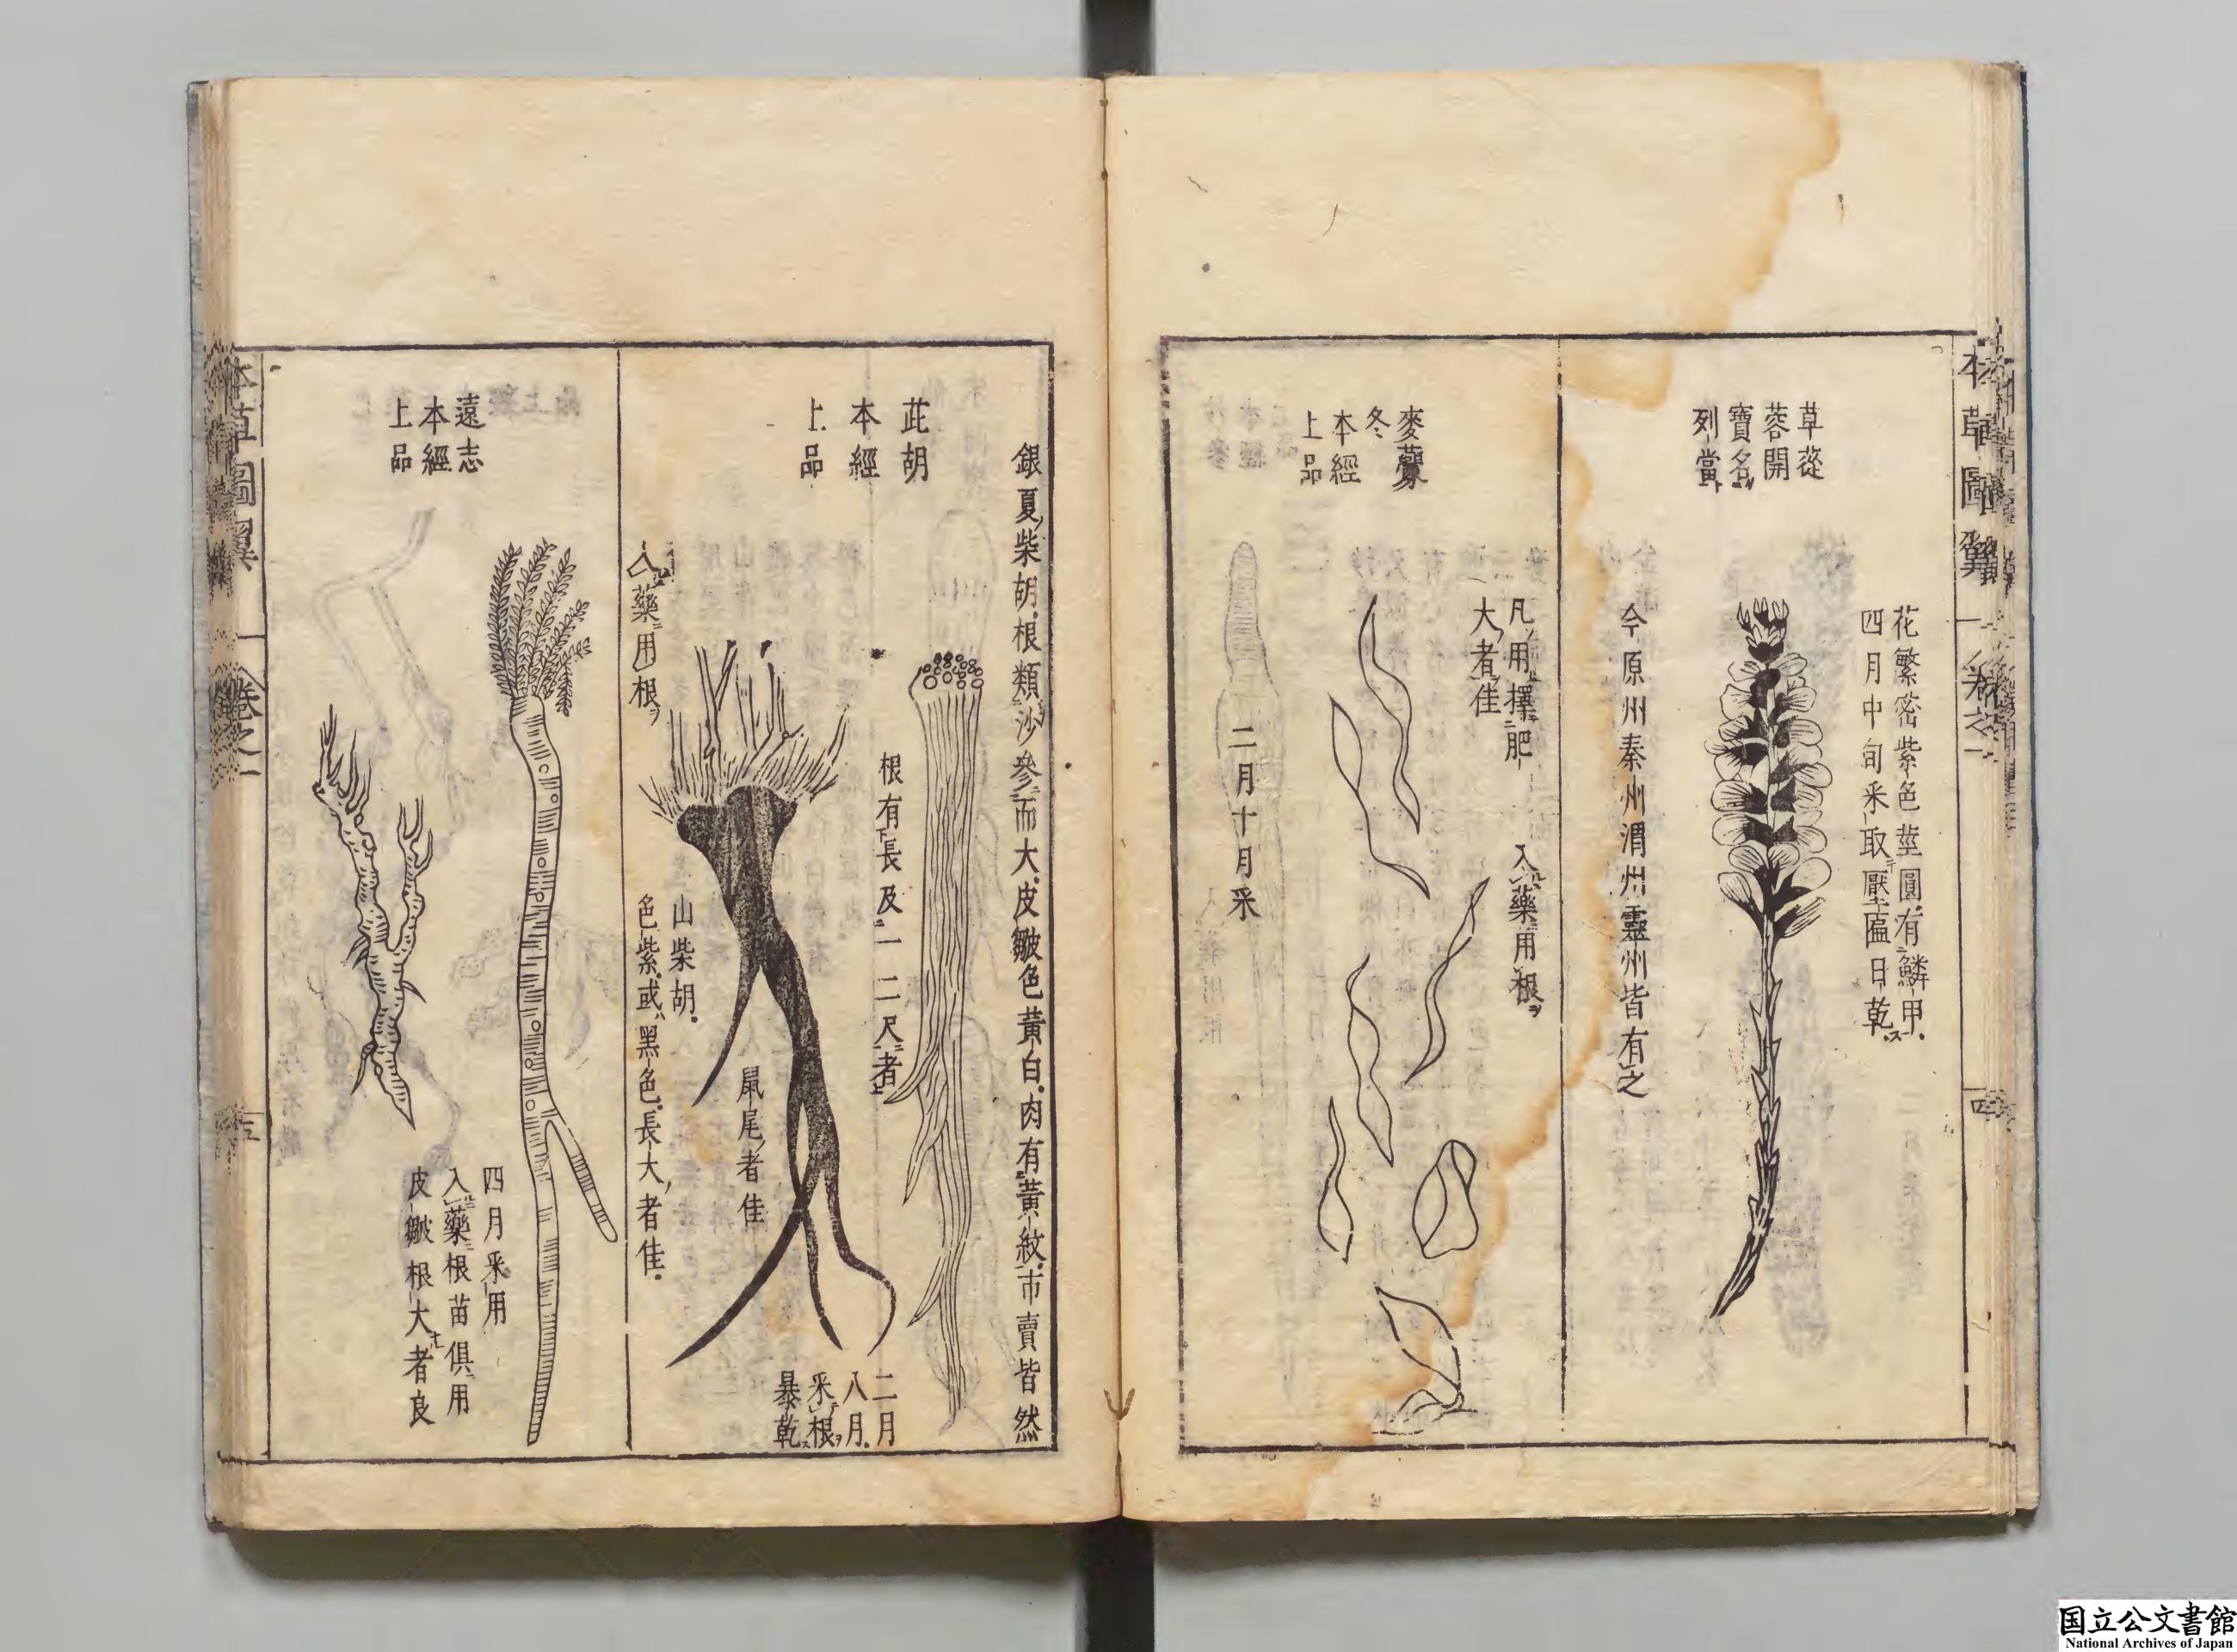 本草圖翼
卷之一
四
草蓯
蓉開
寶名
列當
花繁密紫色莖圓有鱗甲
四月中旬采取壓匾日乾ス
今原州秦州渭州靈州皆有之
麥蘴
冬
本經
上品
凡用擇肥
大者佳
入藥用根ヲ
二月十月采
銀夏柴胡根類沙參而大皮皺色黃白肉有黃紋市賣皆然
茈胡
本經
上品
根有長及一二尺者
二月
八月
采根ヲ
暴乾ス
鼠尾者佳
山柴胡
色紫或黑色長大者佳
入藥用根ヲ
遠志
本經
上品
四月采用
入藥根苗俱用
皮皺根大者良
本草圖翼
卷之一
五
国立公文書館
National Archives of Japan